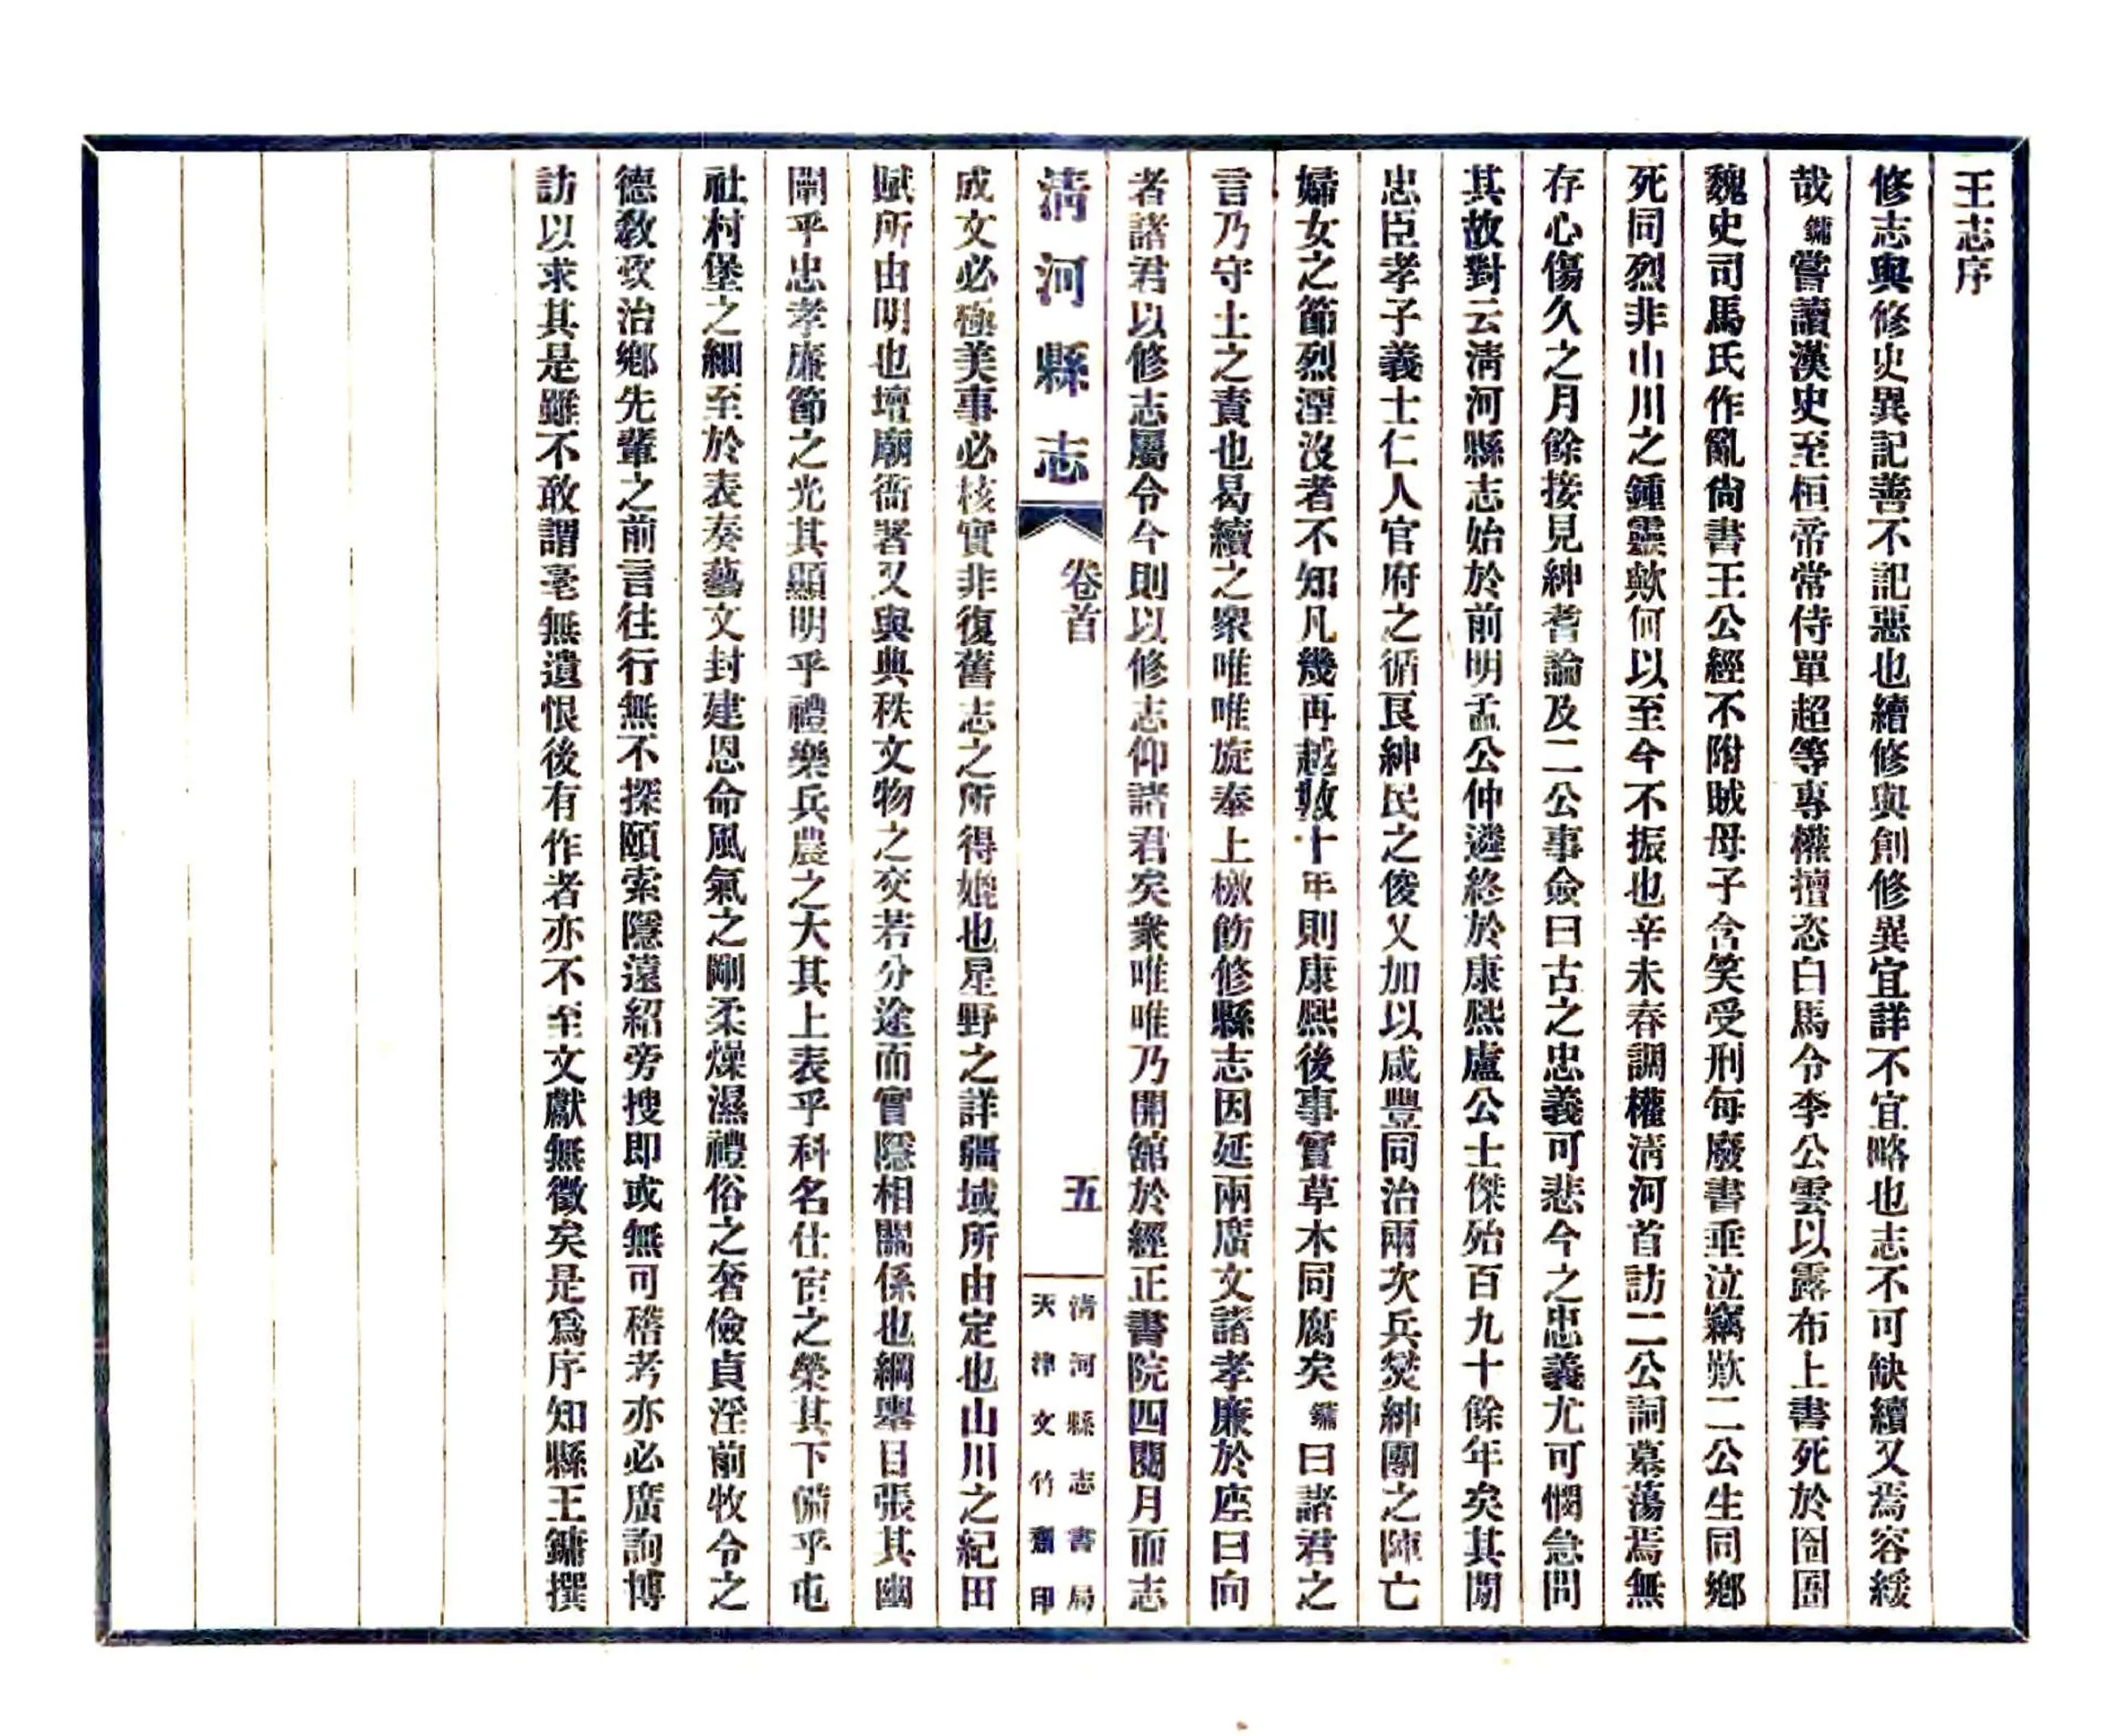 王志序
修志與修史異記善不記惡也續修與創修異宜詳不宜略也志不可缺續又焉容緩
哉鏞嘗讀漢史至桓帝常侍單超等專權擅恣白馬令李公雲以露布上書死於囹圄
魏史司馬氏作亂尙書王公經不附賊母子含笑受刑每廢書垂泣竊歎二公生同鄉
死同烈非山川之鍾靈歟何以至今不振也辛未春調權淸河首訪二公祠墓蕩焉無
存心傷久之月餘接見紳耆論及二公事僉曰古之忠義可悲今之忠義尤可憫急問
其故對云淸河縣志始於前明孟公仲遴終於康熙盧公士傑殆百九十餘年矣其間
忠臣孝子義士仁人官府之循良紳民之俊乂加以咸豐同治兩次兵燹紳團之陣亡
婦女之節烈湮沒者不知凡幾再越數十年則康熙後事實草木同腐矣鏞曰諸君之
言乃守土之責也曷續之衆唯唯旋奉上檄飭修縣志因延兩席文諸孝廉於座曰向
者諸君以修志屬令今則以修志仰諸君矣衆唯唯乃開舘於經正書院四閱月而志
淸河縣志
卷首
五
淸河縣志書局
天津文竹齋印
成文必極美事必核實非復舊志之所得媲也星野之詳疆域所由定也山川之紀田
賦所由明也壇廟衙署又與典秩文物之交若分途而實隱相關係也綱舉目張其幽
闡乎忠孝廉節之光其顯明乎禮樂兵農之大其上表乎科名仕宦之榮其下備乎屯
社村堡之細至於表奏藝文封建恩命風氣之剛柔燥濕禮俗之奢儉貞淫前牧令之
德敎政治鄉先輩之前言往行無不探頤索隱遠紹旁搜即或無可稽考亦必廣詢博
訪以求其是雖不敢謂毫無遺恨後有作者亦不至文獻無徵矣是爲序知縣王鏞撰